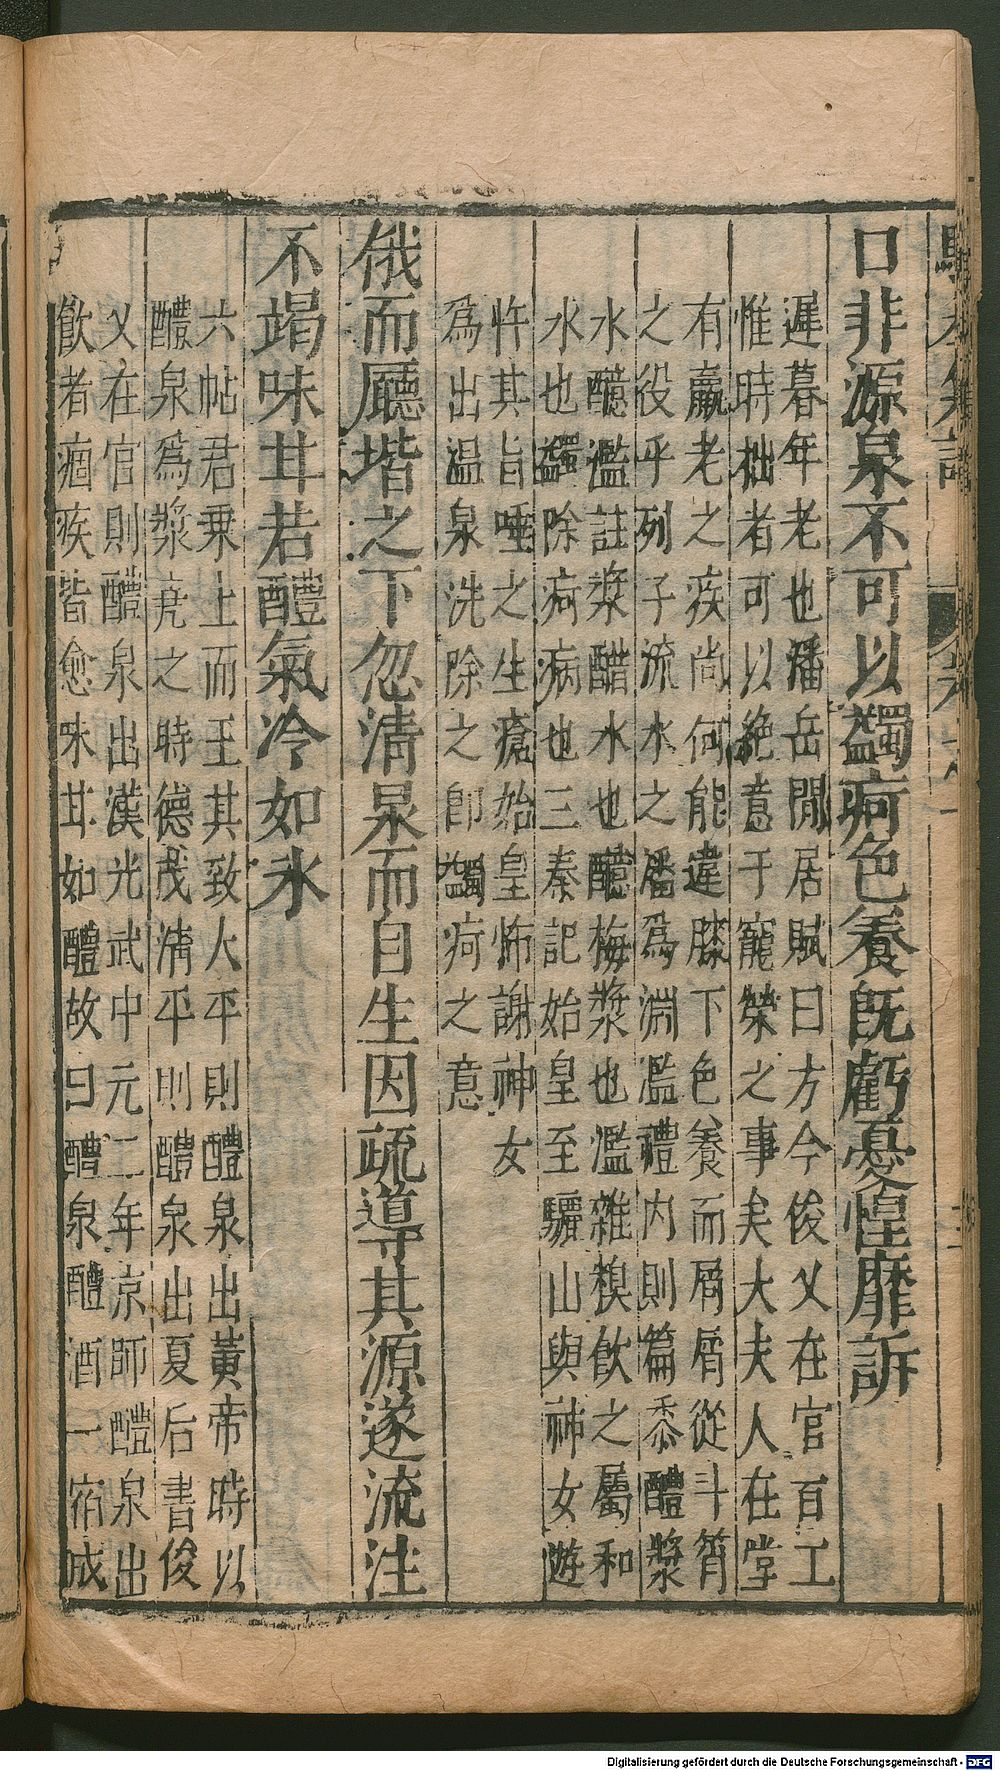 口非源泉不可以蠲疴色養既虧憂惶靡訴
遲暮年老也潘岳閒居賦曰方今俊乂在官百工
惟時拙者可以絶意于寵榮之事矣大夫人在堂
有羸老之疾尚何能違膝下色養而屑屑從斗筲
之役乎列子流水之潘爲淵濫禮内則篇黍醴漿
水醷濫註漿醋水也醷梅漿也濫雜糗飮之屬和
水也蠲除疴病也三秦記始皇至驪山與神女遊
忤其旨唾之生瘡始皇怖謝神女
爲出温泉洗除之卽蠲疴之意
俄而廳堦之下忽清泉而自生因疏導其源遂流注
不竭味甘若醴氣冷如氷
六帖君乗上而王其致大平則醴泉出黃帝時以
醴泉爲漿堯之時德茂清平則醴泉出夏后書俊
乂在官則醴泉出漢光武中元二年京師醴泉出
飮者痼疾皆愈味甘如醴故曰醴泉醴酒一宿成
Digitalisierung gefördert durch die Deutsche Forschungsgemeinschaft - DFG